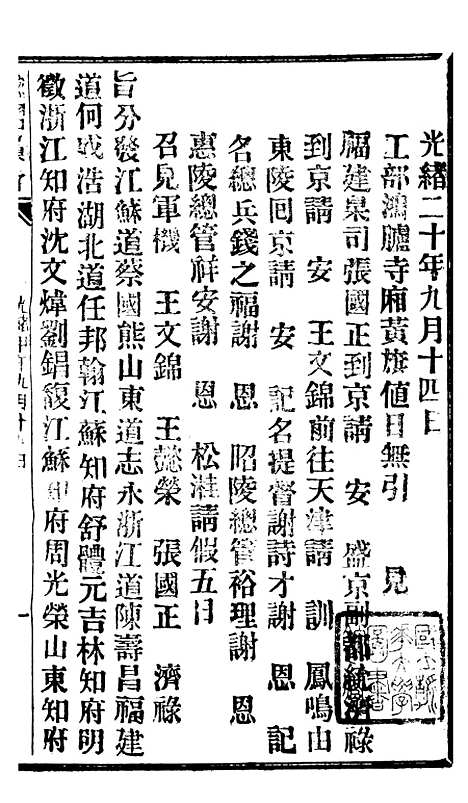 光緒二十年九月十四日
工部鴻臚寺廂黃旗值日無引　見
福建臬司張國正到京請　安　盛京副都統濟祿
到京請　安　王文錦前往天津請　訓　鳳鳴由
東陵回京請　安　記名提督謝詩才謝　恩　記
名總兵錢之福謝　恩　昭陵總管裕理謝　恩
惠陵總管祥安謝　恩　松溎請假五日
召見軍機　王文錦　王懿榮　張國正　濟祿
旨分發江蘇道蔡國熊山東道志永浙江道陳壽昌福建
道何成浩湖北道任邦翰江蘇知府舒體元吉林知府明
徵浙江知府沈文煒劉錩馥江蘇知府周光榮山東知府
一